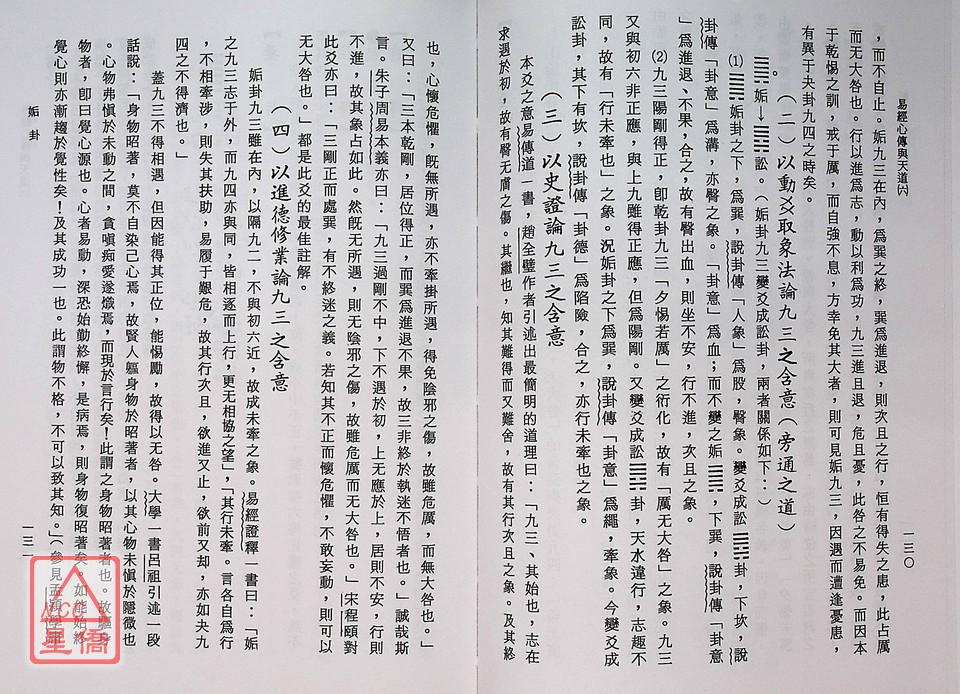 易經心傳與天道(六)
一三〇
，而不自止。姤九三在內，爲巽之終，巽爲進退，則次且之行，恒有得失之患，此占厲
而无大咎也。行以進爲志，動以利爲功，九三進且退，危且憂，此咎之不易免。而因本
于乾惕之訓，戒于厲，而自強不息，方幸免其大者，則可見姤九三，因遇而遭逢憂患，
有異于夬卦九四之時矣。
（二）以動爻取象法論九三之含意（旁通之道）
䷫姤→䷅訟。（姤卦九三變爻成訟卦，兩者關係如下：）
⑴䷫姤卦之下，爲巽，說卦傳「人象」爲股，臀象。變爻成訟䷅卦，下坎，說
卦傳「卦意」爲溝，亦臀之象。「卦意」爲血；而不變之姤䷫，下巽，說卦傳「卦意
」爲進退、不果，合之，故有臀出血，則坐不安，行不進，次且之象。
⑵九三陽剛得正，卽乾卦九三「夕惕若厲」之衍化，故有「厲无大咎」之象。九三
又與初六非正應，與上九雖得正應，但爲陽剛。又變爻成訟䷅卦，天水違行，志趣不
同，故有「行未牽也」之象。況姤卦之下爲巽，說卦傳「卦意」爲繩，牽象。今變爻成
訟卦，其下有坎，說卦傳「卦德」爲陷險，合之，亦行未牽也之象。
（三）以史證論九三之含意
本爻之意易傳道一書，趙全璧作者引述出最簡明的道理曰：「九三、其始也，志在
求遇於初，故有臀无膚之傷。其繼也，知其難得而又難舍，故有其行次且之象。及其終
姤卦
一三一
也，心懷危懼，旣無所遇，亦不牽掛所遇，得免陰邪之傷，故雖危厲，而無大咎也。」
又曰：「三本乾剛，居位得正，而巽爲進退不果，故三非終於執迷不悟者也。」誠哉斯
言。朱子周易本義亦曰：「九三過剛不中，下不遇於初，上无應於上，居則不安，行則
不進，故其象占如此。然旣无所遇，則无陰邪之傷，故雖危厲而无大咎也。」宋程頤對
此爻亦曰：「三剛正而處巽，有不終迷之義。若知其不正而懷危懼，不敢妄動，則可以
无大咎也。」都是此爻的最佳註解。
（四）以進德修業論九三之含意
姤卦九三雖在內，以隔九二，不與初六近，故成未牽之象。易經證釋一書曰：「姤
之九三志于外，而九四亦與同，皆相逐而上行，更无相協之望，「其行未牽。言各自爲行
，不相牽涉，則失其扶助，易履于艱危，故其行次且，欲進又止，欲前又却，亦如夬九
四之不得濟也。」
蓋九三不得相遇，但因能得其正位，能惕勵，故得以无咎。大學一書呂祖引述一段
話說：「身物昭著，莫不自染己心焉，故賢人軀身物於昭著者，以其心物未愼於隱微也
。心物弗愼於未動之間，貪嗔痴愛遂熾焉，而現於言行矣！此謂之身物昭著者也。故軀身
物者，卽曰覺心源也。心者易動，深恐始勤終懈，是病焉，則身物復昭著矣。如能始終
覺心則亦漸趨於覺性矣！及其成功一也。此謂物不格，不可以致其知。」（參見孟穎學庸
NCC
星僑